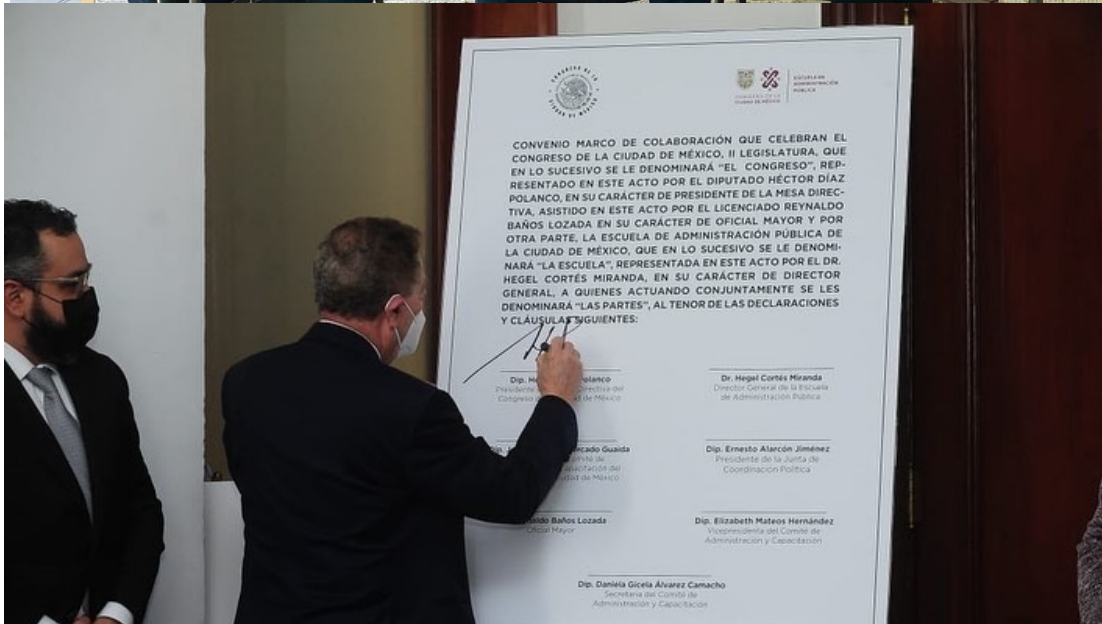 CONGRESO DE LA
CIUDAD DE MÉXICO
CIUDAD DE MÉXICO
ESCUELA DE
ADMINISTRACIÓN
PÚBLICA
CONVENIO MARCO DE COLABORACIÓN QUE CELEBRAN EL
CONGRESO DE LA CIUDAD DE MÉXICO, II LEGISLATURA, QUE
EN LO SUCESIVO SE LE DENOMINARÁ "EL CONGRESO", REP-
RESENTADO EN ESTE ACTO POR EL DIPUTADO HÉCTOR DÍAZ
POLANCO, EN SU CARÁCTER DE PRESIDENTE DE LA MESA DIREC-
TIVA, ASISTIDO EN ESTE ACTO POR EL LICENCIADO REYNALDO
BAÑOS LOZADA EN SU CARÁCTER DE OFICIAL MAYOR Y POR
OTRA PARTE, LA ESCUELA DE ADMINISTRACIÓN PÚBLICA DE
LA CIUDAD DE MÉXICO, QUE EN LO SUCESIVO SE LE DENOMI-
NARÁ "LA ESCUELA", REPRESENTADA EN ESTE ACTO POR EL DR.
HEGEL CORTÉS MIRANDA, EN SU CARÁCTER DE DIRECTOR
GENERAL, A QUIENES ACTUANDO CONJUNTAMENTE SE LES
DENOMINARÁ "LAS PARTES", AL TENOR DE LAS DECLARACIONES
Y CLÁUSULAS SIGUIENTES:
Dip. Polanco
Presidente Directiva del
Congreso Ciudad de México
Dr. Hegel Cortés Miranda
Director General de la Escuela
de Administración Pública
Dip. Mercado Guaida
Comité de
Capacitación del
Ciudad de México
Dip. Ernesto Alarcón Jiménez
Presidente de la Junta de
Coordinación Política
Baños Lozada
Oficial Mayor
Dip. Elizabeth Mateos Hernández
Vicepresidenta del Comité de
Administración y Capacitación
Dip. Daniela Gicela Álvarez Camacho
Secretaria del Comité de
Administración y Capacitación